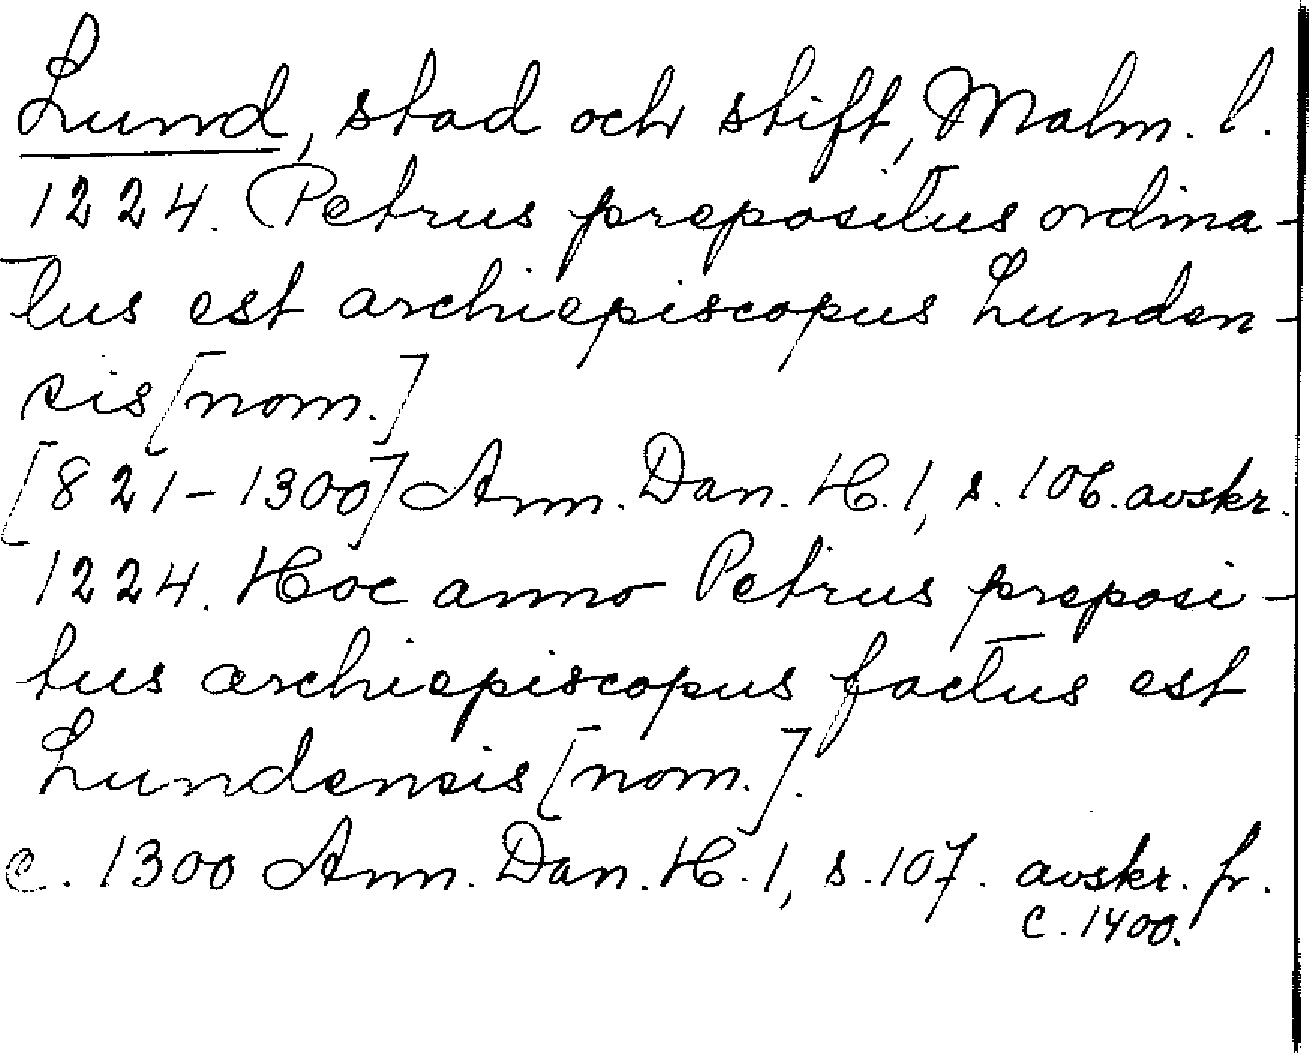 Lund, stad och stift, Malm. l.
1224. Petrus prepositus ordina-
tus est archiepiscopus Lunden-
sis [nom.]
[821-1300] Ann. Dan. H. 1, s. 106. avskr.
1224. Hoc anno Petrus preposi-
tus archiepiscopus factus est
Lundensis [nom.].
c. 1300 Ann. Dan. H. 1, s. 107. avskr. fr.
c. 1400.